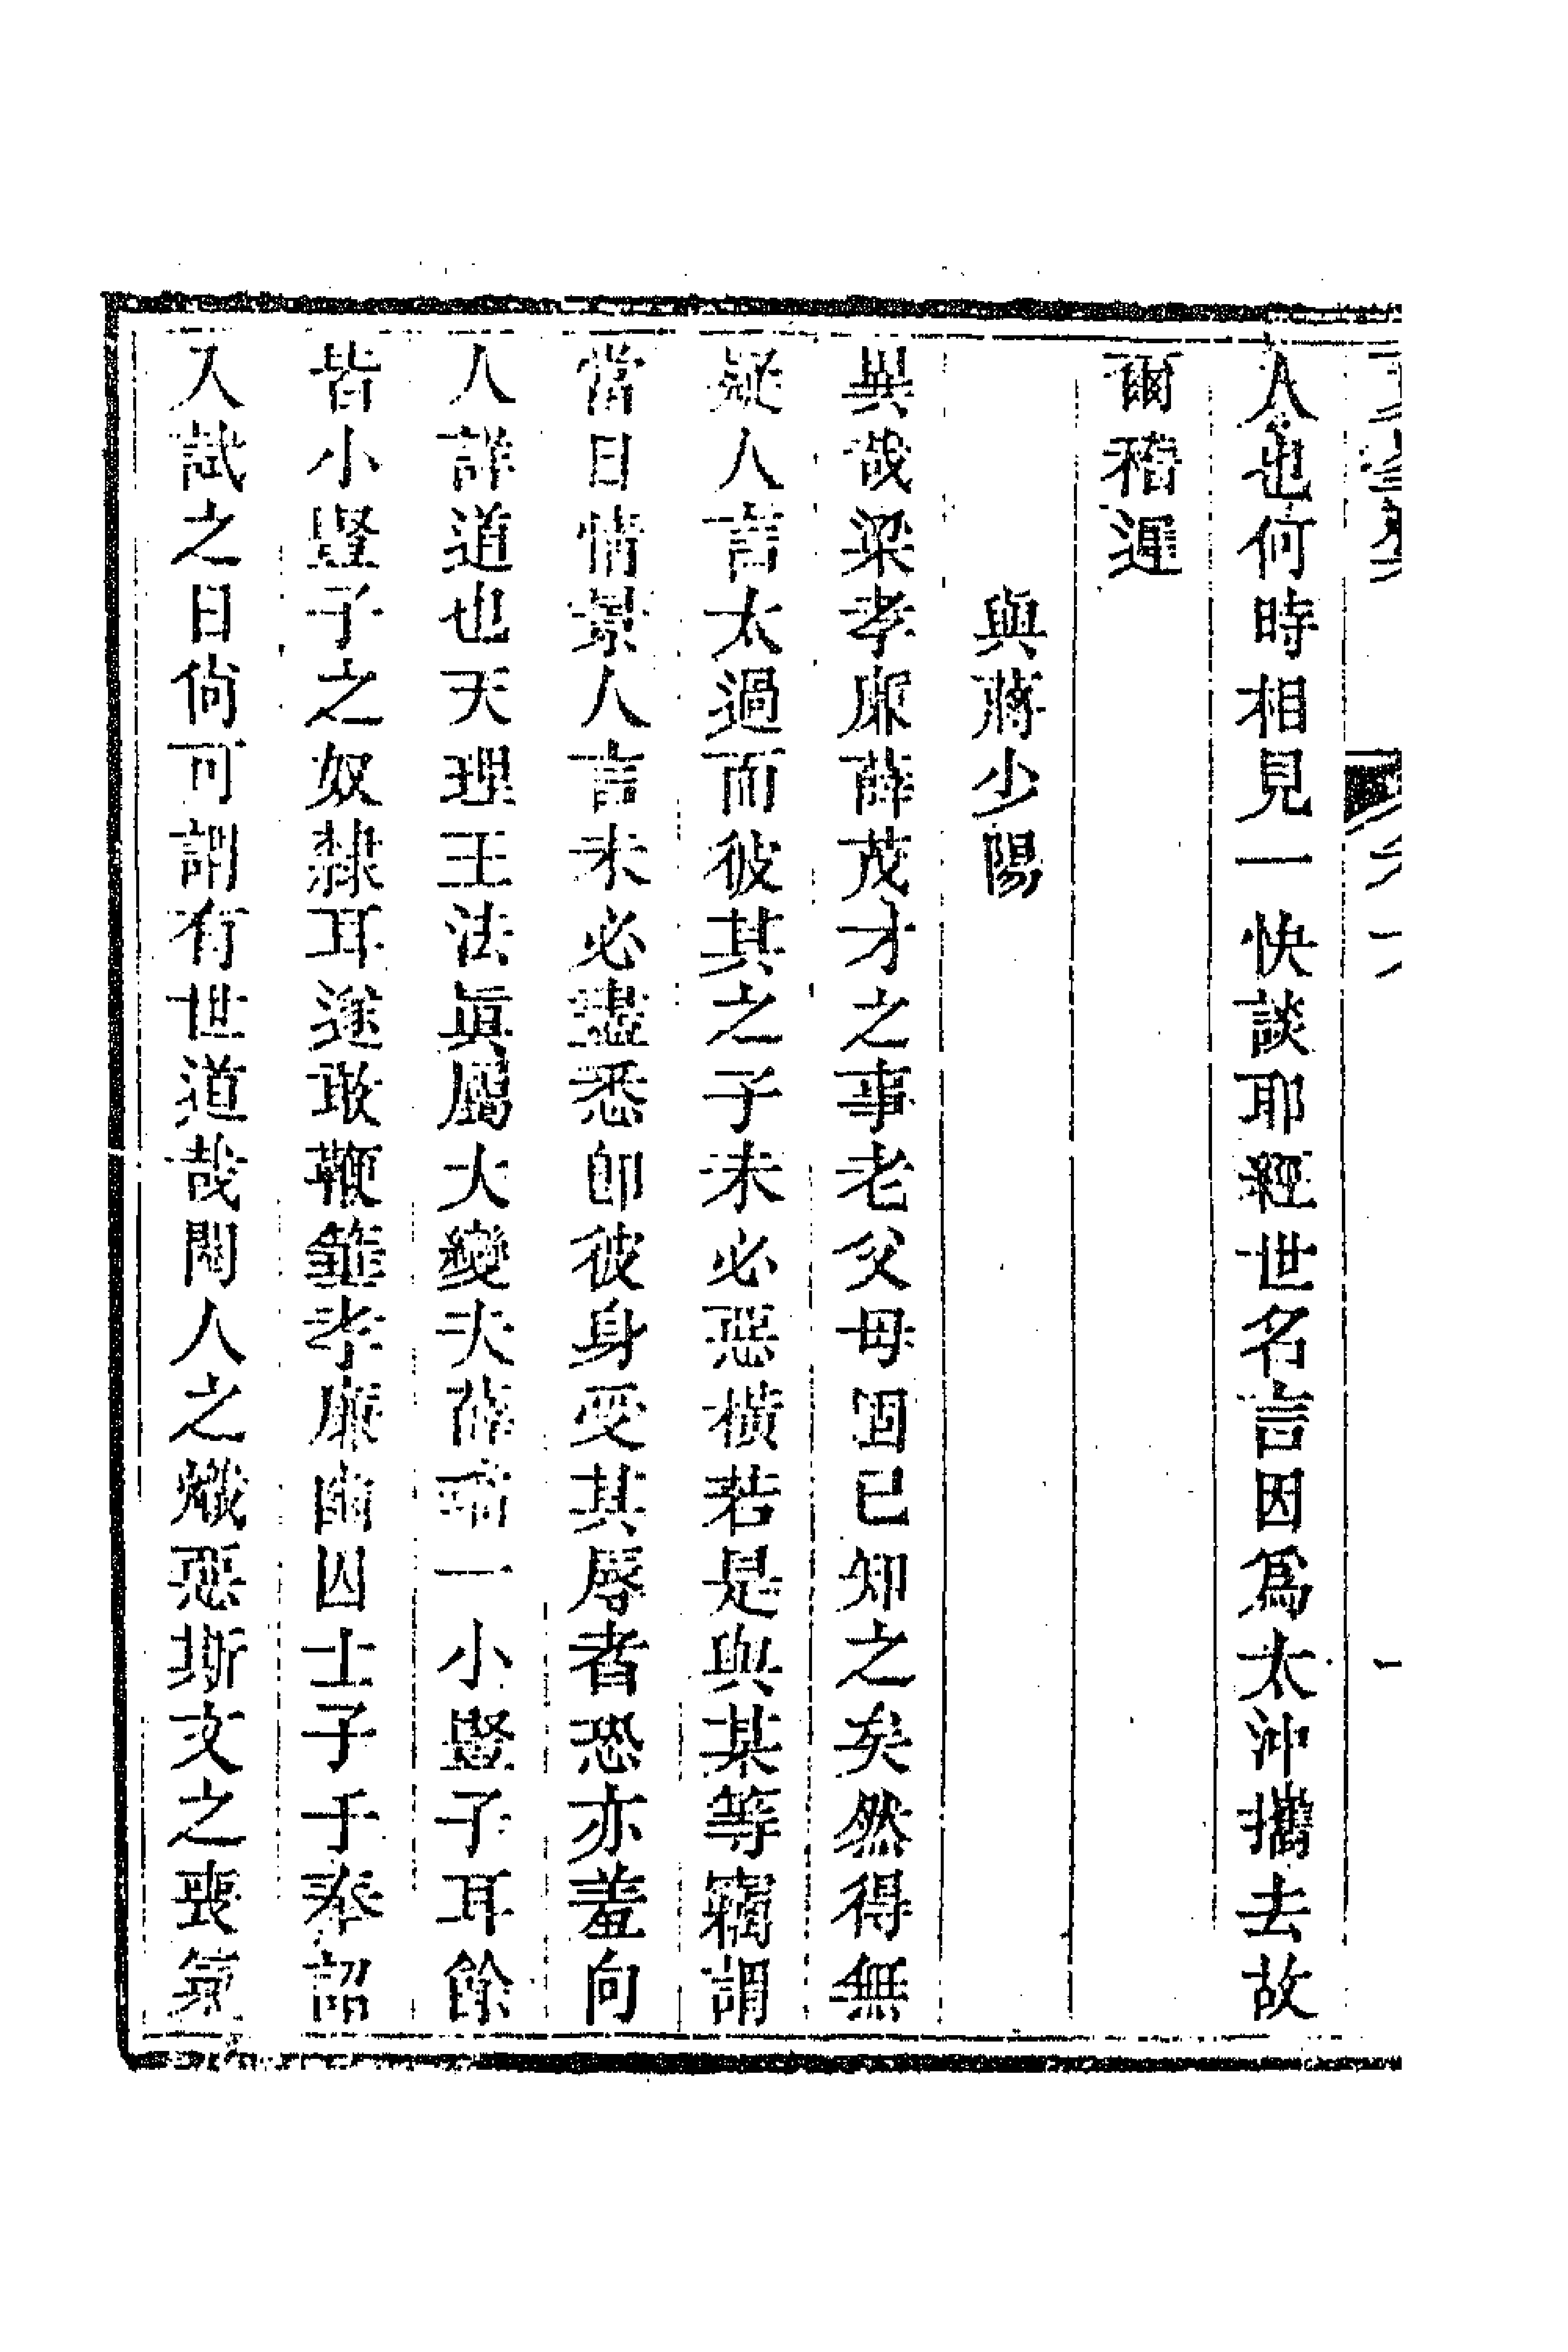 人也何時相見一快談耶經世名言因爲太沖攜去故
爾稽遲
與蔣少陽
異哉梁孝廉薛茂才之事老父母固已知之矣然得無
疑人言太過而彼其之子未必惡橫若是與某等竊謂
當日情景人言未必盡悉卽彼身受其辱者恐亦羞向
人詳道也天理王法眞屬大變夫薛 一小豎子耳餘
皆小豎子之奴隸耳遂敢鞭箠孝廉幽囚士子于奉詔
入試之日尙可謂有世道哉閹人之熾惡斯文之喪氣